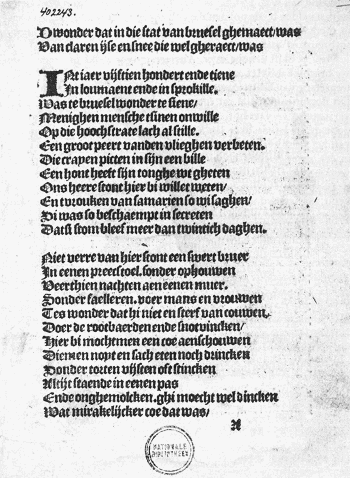 402243.
Dwonder dat in die stat van bruesel ghemaect/was
Van claren ijse en snee die wel gheraect/was
INt iaer vijftien hondert ende tiene
In loumaent ende in sprokille.
Was te bruesel wonder te siene/
Menighen mensche tsinen onwille
Op die hoochstrate lach al stille.
Een groot peert vanden vlieghen verbeten.
Die crayen picten in sijn een bille
Een hont heeft sijn tonghe wt gheten
Ons heere stont hier bi willet weten/
En tvrouken van samarien so wi saghen/
Hi was so beschaempt in secreten
Datsi stom bleef meer dan twintich daghen.
Niet verre van hier stont een swert bruer
In eenen preecstoel. sonder ophouwen
Veerthien nachten aen eenen muer.
Sonder faelleren. voer mans en vrouwen
Tes wonder dat hi niet en sterf van couwen.
Doer de rootbaerden ende snotvincken/
Hier bi mochtmen een coe aenschouwen
Diemen nopt en sach eten noch drincken
Sonder torten vijsten oft stincken
Altijt staende in eenen pas
Ende onghemolcken. ghi moecht wel dincken
Wat mirakelijcker coe dat was/
NATIONALE
BIBLIOTHEEK